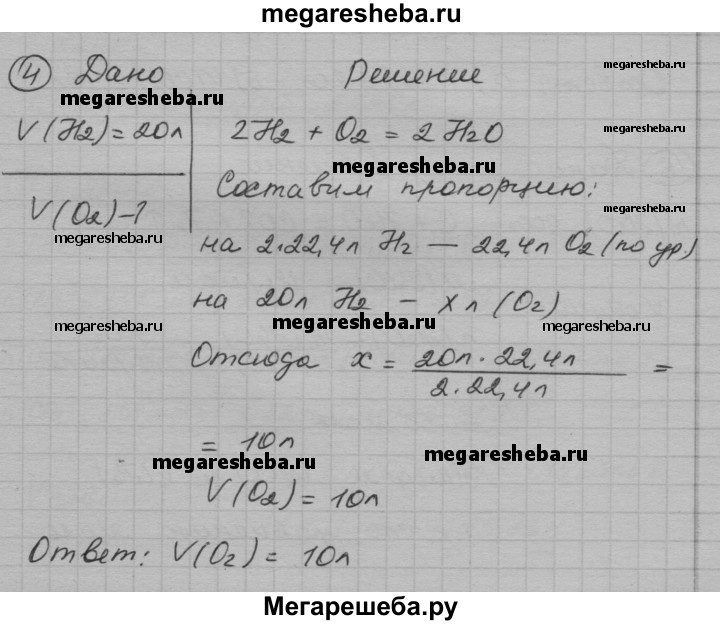 megaresheba.ru
④ Дано Решение
megaresheba.ru megaresheba.ru
V(H2)=20л 2H2 + O2 = 2H2O megaresheba.ru
megaresheba.ru
Составим пропорцию:
V(O2)-? megaresheba.ru
megaresheba.ru
на 2·22,4л H2 — 22,4л O2 (по ур)
на 20л H2 — x л (O2)
megaresheba.ru megaresheba.ru megaresheba.ru
Отсюда x = 20л·22,4л / 2·22,4л =
= 10л
megaresheba.ru megaresheba.ru
V(O2) = 10л
Ответ: V(O2) = 10л
Мегарешеба.ру